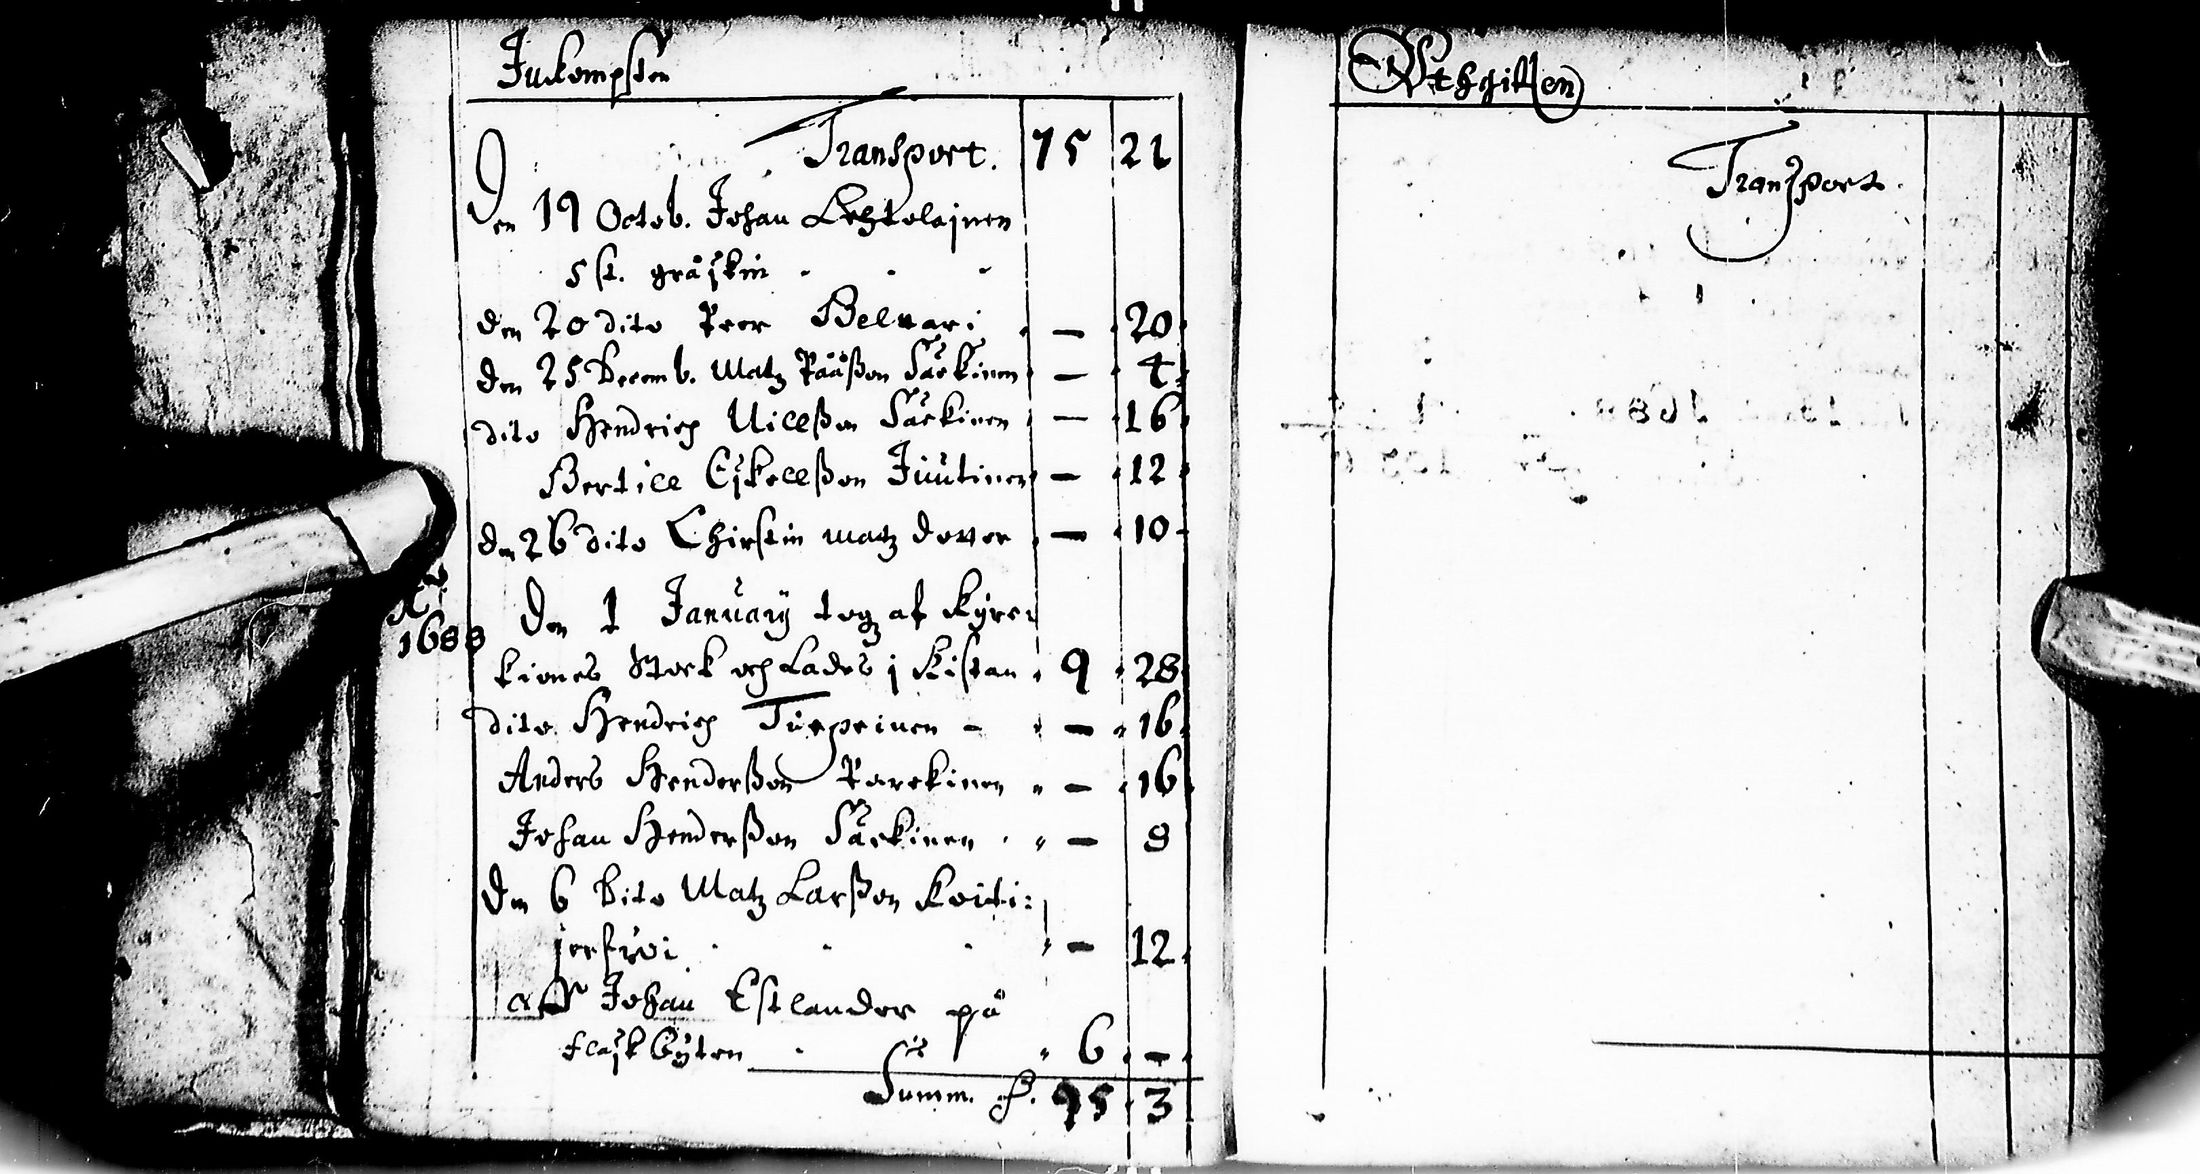 Inkompsten
Transport. 75 21
Den 19 Octob. Johan Lehtolainen
5 st. gråskin - - -
den 20 dito Peer Belvari — 20
den 25 Decemb. Matz Pååßon Särkinen — 4
dito Hendrich Nilßon Särkinen — 16
Bertill Eskellßon Juutinen — 12
den 26 dito Chirstin matz dotter — 10
A:o 1688
Den 1 January tog af Kyrc-
kiones Stock och Lades i Kistan 9 28
dito Hendrich Turpeinen - — 16
Anders Henderßon Parckinen — 16
Johan Henderßon Särkinen — 8
Den 6 Dito Matz Larßon Koiti:
jerfwi — 12
aff Johan Estlander på
6 —
Summ. 95 3
Uthgiften
Transport.